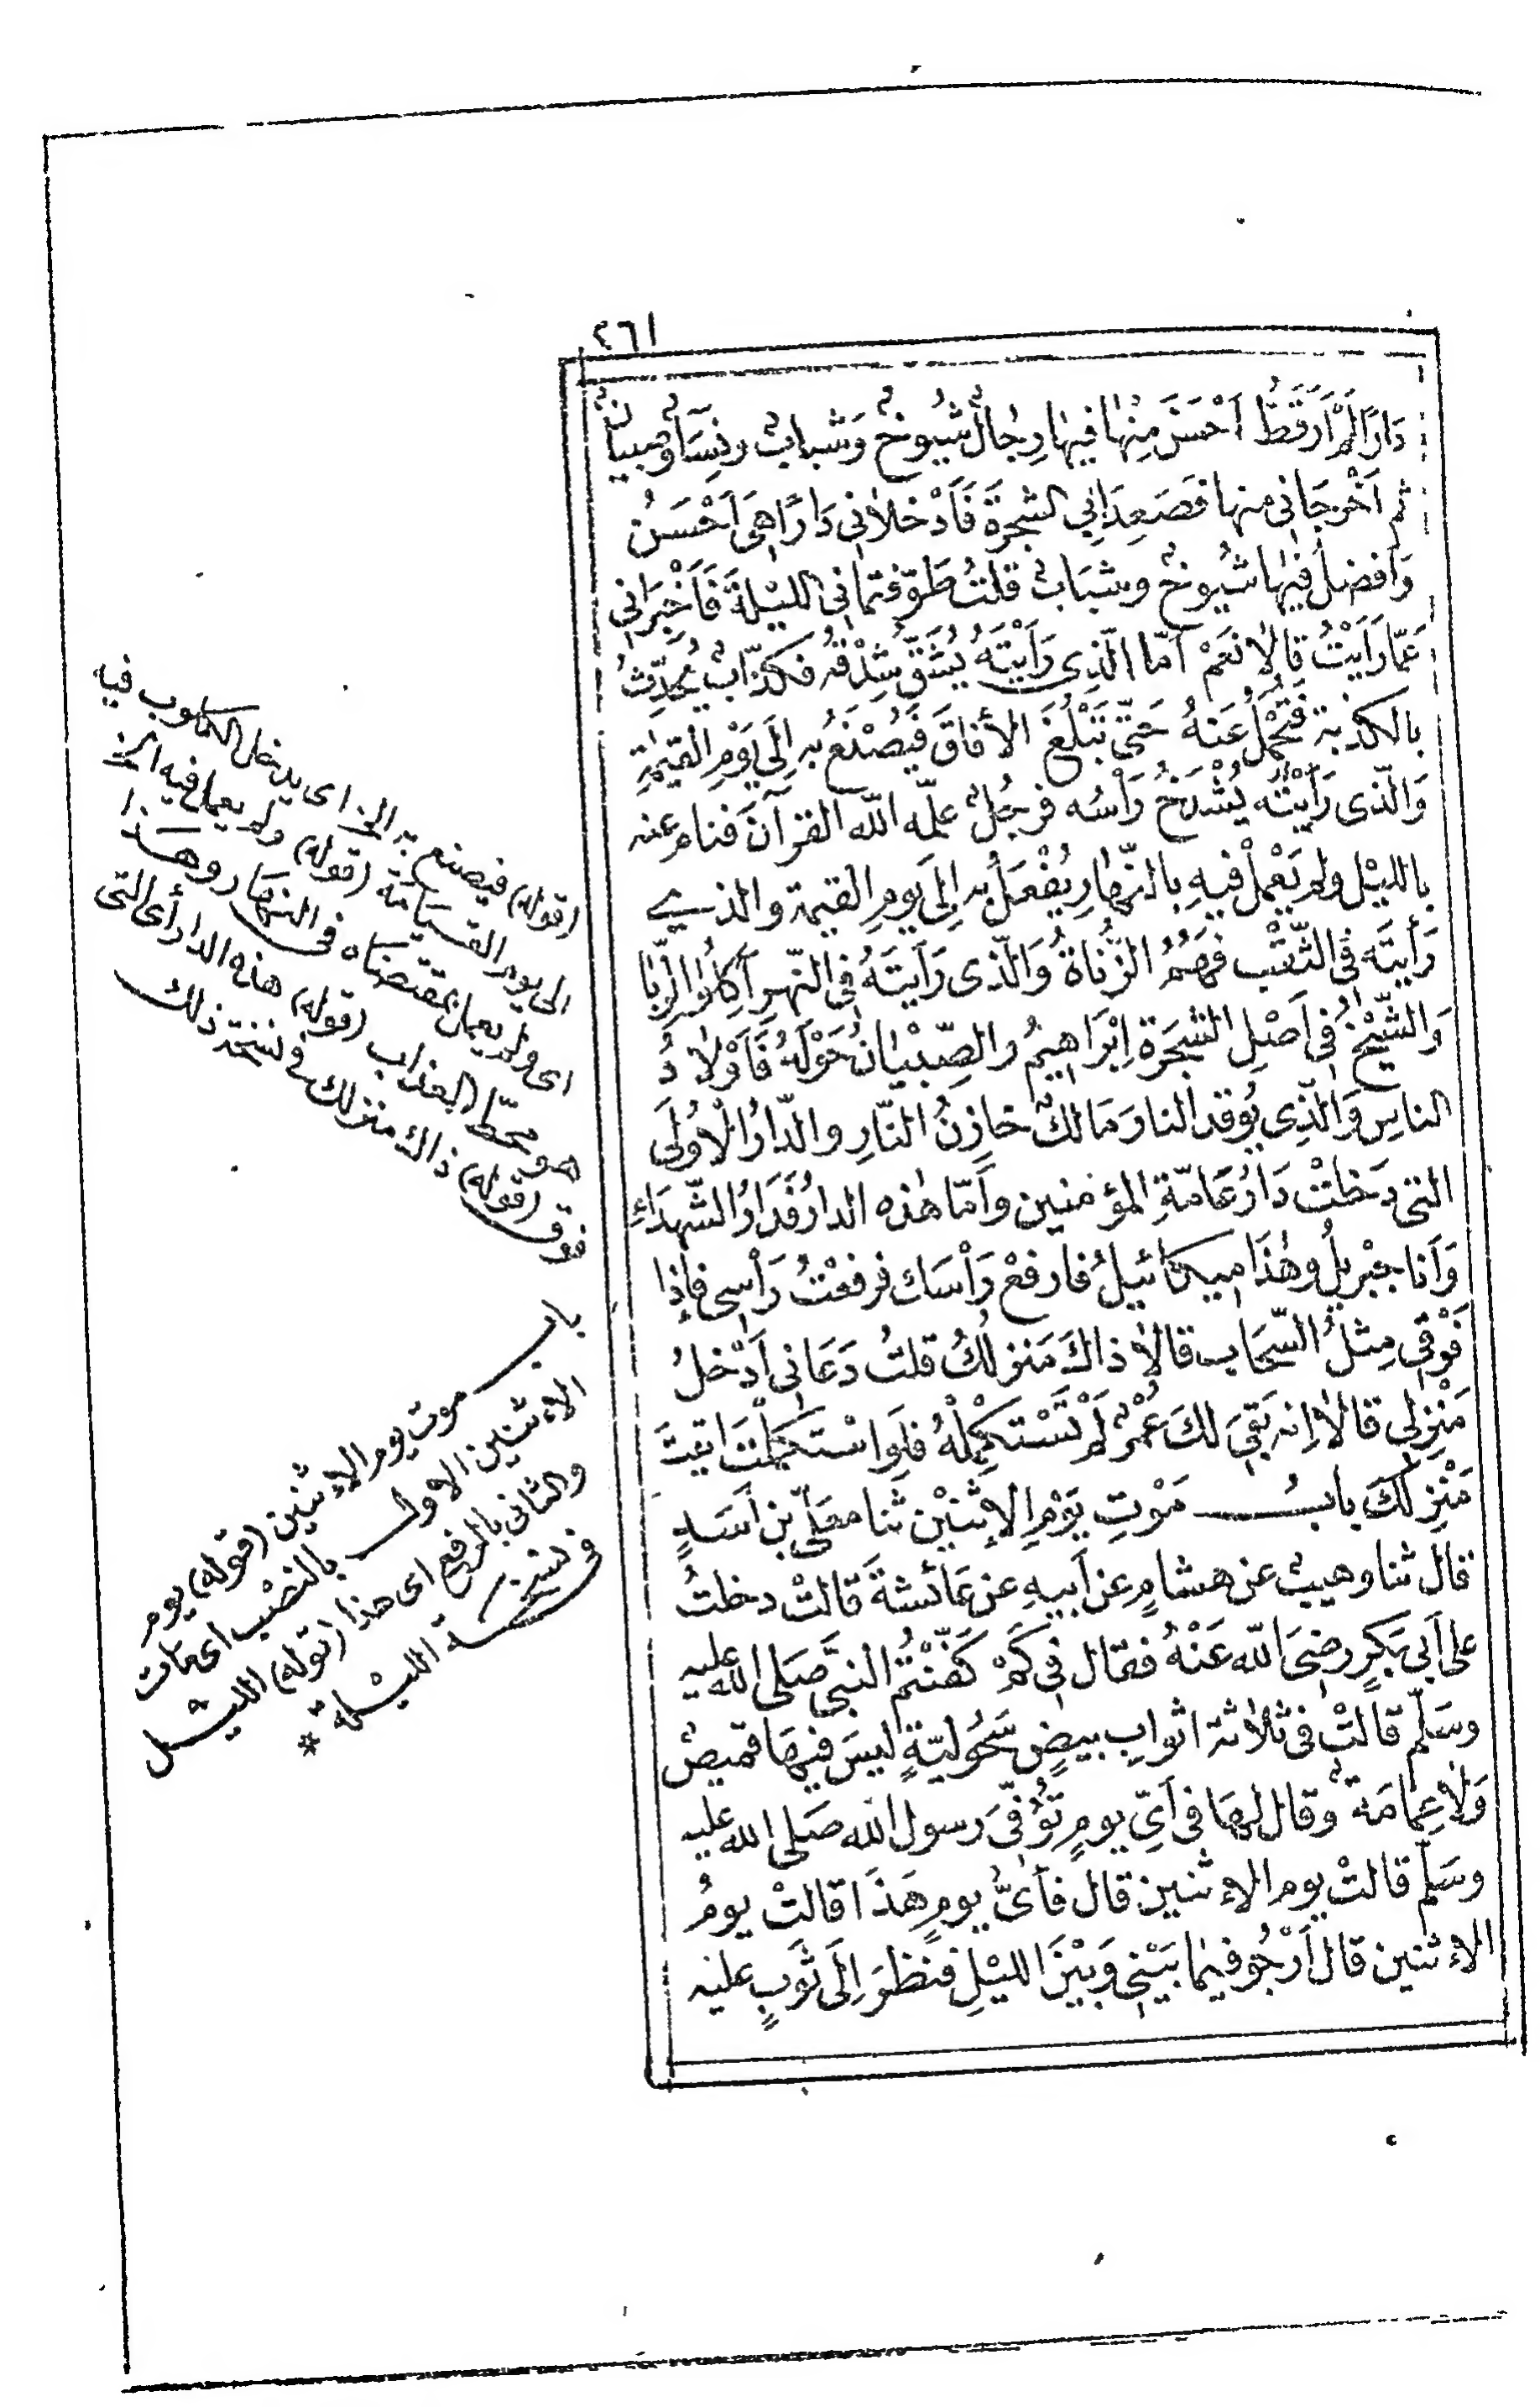 ٤٦١
دَارًا لَمْ اَرَ قَطُّ اَحْسَنَ مِنْهَا فيهَا رِجَالٌ شُيُوخٌ وَشَبابٌ ونِسَآءٌ وصبيانٌ
ثم اَخْرجَانى منها فصَعِدَا بِي الشجرةَ فَاَدْخلانى دَارًا هِىَ اَحْسَنُ
وَافضلُ فيها شُيوخٌ وشبَابٌ قلتُ طَوَّفتمانى الليْلةَ فَاَخْبِرَانى
عَمَّا رَاَيْتُ قالا نعَمْ اَمّا الّذِى رَاَيْتَهُ يُشَقُّ شِدْقُه فكذّابٌ يُحَدِّثُ
بالكذبة فَتُحْمَلُ عَنهُ حَتّى تَبْلُغَ الآفاقَ فَيُصْنَعُ به اِلَى يَوْمِ القيمةِ
وَالّذى رَاَيْتَه يُشْدَخُ رَأْسُه فرجُلٌ علّمه الله القرآنَ فنام عنه
بالليْل ولم يَعْمَلْ فيهِ بالنّهارِ يُفْعَلُ به اِلَى يومِ القيمة والذى
رَاَيتَه فى الثَّقْبِ فهُمُ الزُّناةُ وَالّذى رَاَيتَهُ فى النّهرِ آكلُوا الرِّبا
وَالشّيْخُ فى اَصْلِ الشجَرَة اِبْرَاهِيمُ والصِّبْيانُ حَوْلَهُ فَاَوْلادُ
الناسِ وَالّذِى يُوقد النارَ مَالكٌ خازِنُ النّارِ والدّارُ الاُولَى
التى دَخلتَ دَارُ عَامّةِ المؤمنين وَاَمّا هٰذه الدارُ فَدَارُ الشّهدَاءِ
وَاَنا جبْريلُ وهٰذَا ميكائيلُ فارفعْ رَأْسَك فرفعْتُ رَأْسِى فاِذا
فَوْقِى مِثلُ السّحَابِ قالا ذاكَ مَنزلكَ قلتُ دَعَانى اَدْخلُ
مَنْزلِى قالا اِنه بَقِىَ لكَ عُمْرٌ لَمْ تَسْتكْمِلْهُ فلَوِ اسْتكملْتَ اَتيتَ
مَنْزِلكَ بابُ مَوْتِ يَوْمِ الاِثنَيْنِ ثنا معَلّى بْن اَسَدٍ
قالَ ثنا وهيبٌ عن هشامٍ عن اَبيهِ عن عَائشةَ قالتْ دخلتُ
على اَبِى بَكرٍ رضِىَ الله عَنْهُ فقال فِى كَمْ كَفّنْتُمُ النبَّى صَلى الله عليه
وسَلّم قالتْ فى ثلاثة اثوابٍ بيضٍ سَحُوليّةٍ ليسَ فيها قميصٌ
وَلا عِمامَةٌ وقال لها فى اَىِّ يومٍ تُوُفّىَ رسول الله صَلى الله عليه
وسَلّم قالتْ يوم الاثنين قال فَاَىُّ يومٍ هَذَا قالتْ يومُ
الاثنين قال اَرْجُو فيما بَيْنى وَبَيْنَ الليْلِ فنظرَ اِلَى ثَوبٍ عليه
(قوله) فيصنع به الخ اى يدخل الكلوب فيه
الى يوم القيامة (قوله) ولم يعمل فيه الخ
اى ولم يعمل بمقتضاه فى النهار وهذا
هو محط العذاب (قوله) هذه الدار أى التى
فوق (قوله) ذاك منزلك فى نسخة ذلك
باب موت يوم الاثنين (قوله) يوم
الاثنين الاول بالنصْب اى مات
والثانى بالرفع اى هذا (قوله) الليل
فى نسخة الليلة *